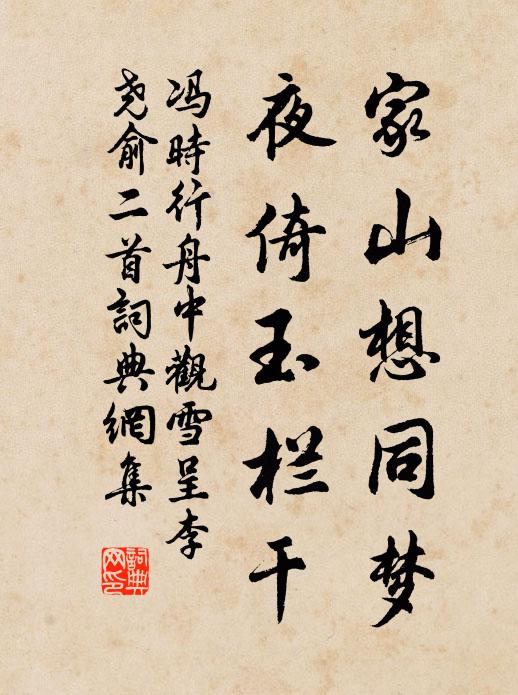 家山想同梦
夜倚玉栏干
冯時行舟中觀雪呈李
尧俞二首詞典網集
詞典网印